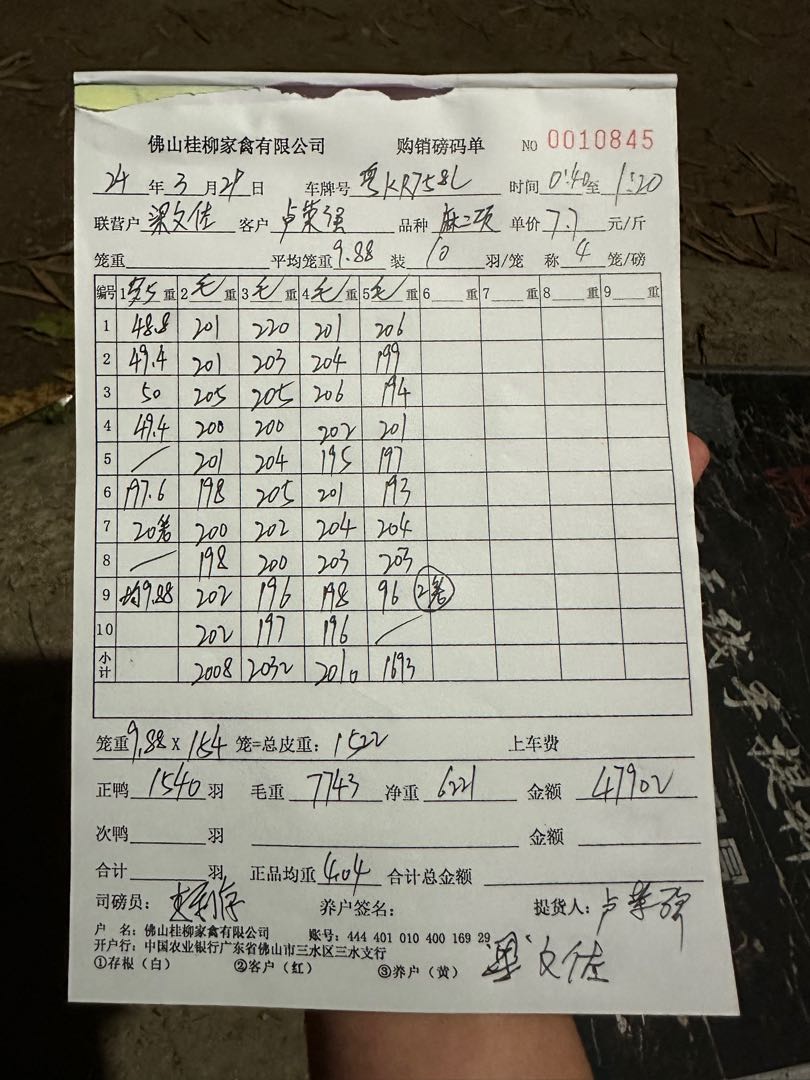 佛山桂柳家禽有限公司 购销磅码单 NO 0010845
24 年 3 月 29 日 车牌号 粤KR758L 时间 0:40 至 1:20
联营户 梁文佳 客户 卢荣强 品种 麻二项 单价 7.7 元/斤
笼重 平均笼重 9.88 装 10 羽/笼 称 4 笼/磅
编号 1 重 2 毛 重 3 毛 重 4 毛 重 5 毛 重 6 重 7 重 8 重 9 重
1 48.8 201 220 201 206
2 49.4 201 203 204 199
3 50 205 205 206 194
4 49.4 200 200 202 201
5 / 201 204 195 197
6 197.6 198 205 201 193
7 20笼 200 202 204 204
8 / 198 200 203 203
9 均9.88 202 196 198 96 2笼
10 202 197 196 /
小计 2008 2032 2010 1693
笼重 9.88 X 154 笼=总皮重: 1522 上车费
正鸭 1540 羽 毛重 7743 净重 6221 金额 47902
次鸭 羽 金额
合计 羽 正品均重 4.04 合计总金额
司磅员: 养户签名: 提货人: 卢荣强
户 名: 佛山桂柳家禽有限公司 账号: 444 401 010 400 169 29
梁文佳
开户行: 中国农业银行广东省佛山市三水区三水支行
①存根（白） ②客户（红） ③养户（黄）